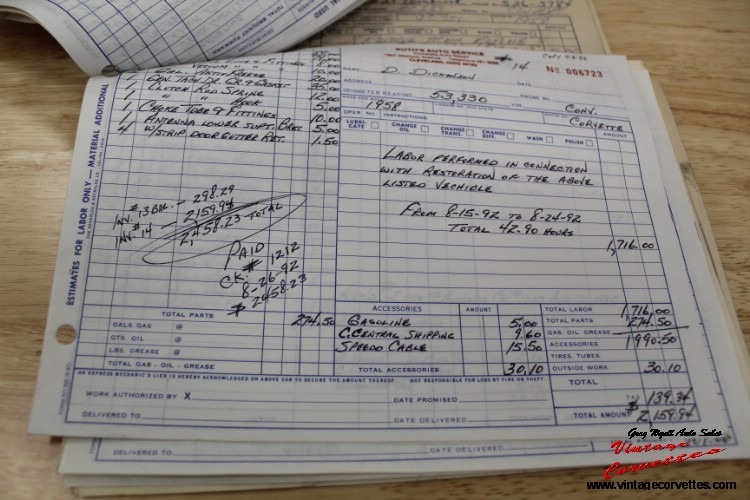 RUTH'S AUTO SERVICE
# 14
Nº 006723
NAME D. Dickinson
DATE
ADDRESS
ODOMETER READING 53,330
PHONE NO.
1958
VIN
CONV.
CORVETTE
OPER. NO.
INSTRUCTIONS:
AMOUNT
LUBRICATE
CHANGE OIL
CHANGE TRANS.
CHANGE DIFF.
WASH
POLISH
LABOR PERFORMED IN CONNECTION
WITH RESTORATION OF THE ABOVE
LISTED VECHICLE
FROM 8-15-92 TO 8-24-92
TOTAL 42.90 HOURS
1,716.00
ESTIMATES FOR LABOR ONLY — MATERIAL ADDITIONAL
FITTINGS
ANTIFREEZE 10.00
1 GEN. TACH. DR. CP. & GASKET 35.00
1 CLUTCH ROD SPRING 12.00
1 " " HOOK 5.00
1 CHOKE TUBE & FITTINGS 10.00
1 ANTENNA LOWER SUPT. BRKT. 5.00
4 W/STRIP DOOR GUTTER RET. 1.50
INV. # 13 BAL. — 298.29
INV. # 14 — 2159.94
2,458.23 TOTAL
PAID
CK. # 1212
8-26-92
$ 2458.23
TOTAL PARTS 274.50
GALS. GAS @
QTS. OIL @
LBS. GREASE @
TOTAL GAS - OIL - GREASE
ACCESSORIES AMOUNT
GASOLINE 5.00
C. CENTRAL SHIPPING 9.60
SPEEDO CABLE 15.50
TOTAL ACCESSORIES 30.10
TOTAL LABOR 1,716.00
TOTAL PARTS 274.50
GAS, OIL, GREASE 1990.50
ACCESSORIES
TIRES, TUBES
OUTSIDE WORK 30.10
TOTAL
TAX 139.34
TOTAL AMOUNT $ 2,159.94
AN EXPRESS MECHANIC'S LIEN IS HEREBY ACKNOWLEDGED ON ABOVE CAR TO SECURE THE AMOUNT THEREOF.
NOT RESPONSIBLE FOR LOSS BY FIRE OR THEFT.
WORK AUTHORIZED BY X
DATE PROMISED
DELIVERED TO
DATE DELIVERED
DELIVERED TO
DATE DELIVERED
Greg Wyatt Auto Sales
Vintage
Corvettes
www.vintagecorvettes.com